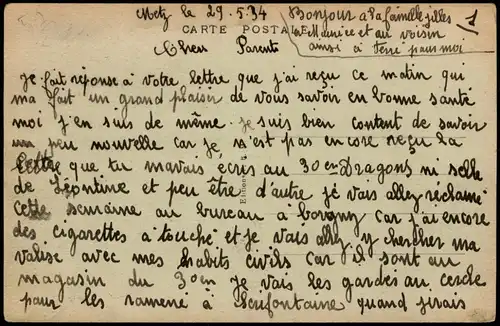 Metz le 29.5.34
Bonjour a la famille gilles
Maurice et au voisin
ainsi à Père pour moi
1
CARTE POSTALE
Chers Parents
Je fait réponse à votre lettre que j'ai reçu ce matin qui
ma fait un grand plaisir de vous savoir en bonne santé
moi j'en suis de même. Je suis bien content de savoir
un peu nouvelle car je n'est pas encore reçu la
lettre que tu mavais écris au 30 en Dragons ni selle
de Léontine et peu être d'autre je vais alley réclamé
cette semaine au bureau a car j'ai encore
des cigarettes a touché et je vais alley y chercher ma
valise avec mes habits civils car il sont au
magasin du 30 en je vais les gardes au cercle
pour les ramené à quand jirais